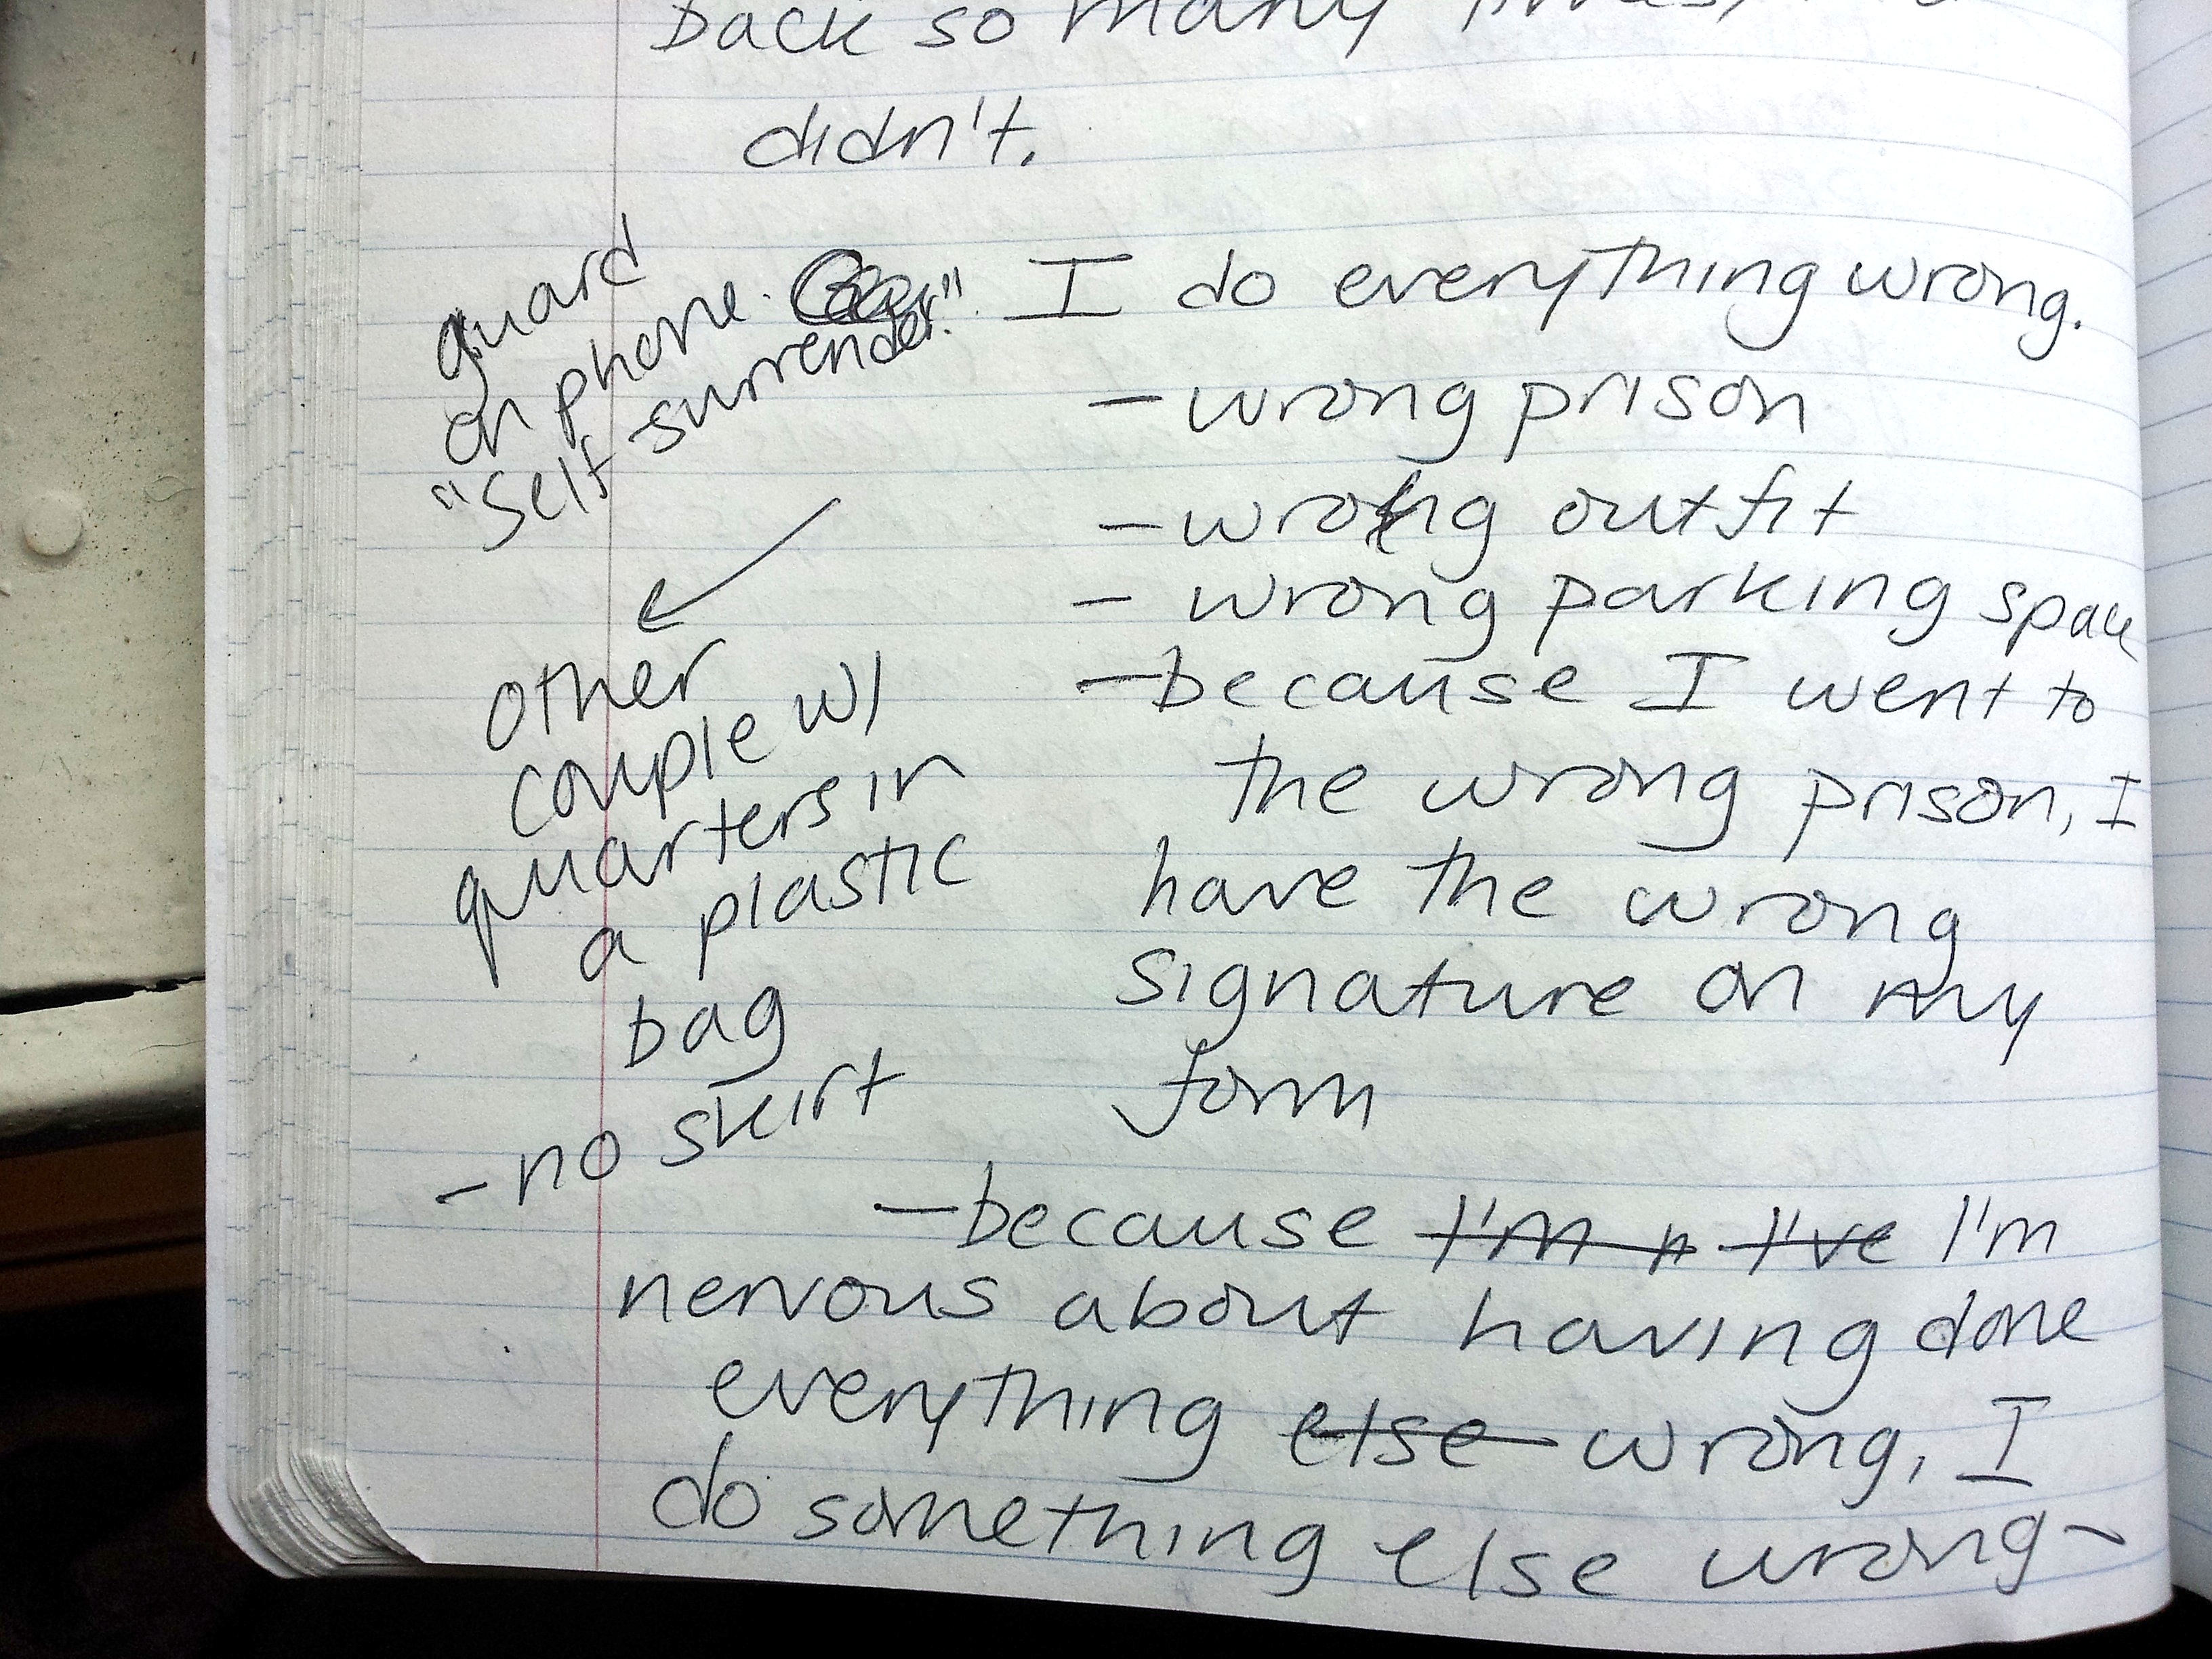 back so many times,
didn't.
guard
on phone.
"Self surrender."
I do everything wrong.
- wrong prison
- wrong outfit
- wrong parking space
- because I went to
the wrong prison, I
have the wrong
signature on my
form
other
couple w/
quarters in
a plastic
bag
- no skirt
- because I'm n I've I'm
nervous about having done
everything else wrong, I
do something else wrong -